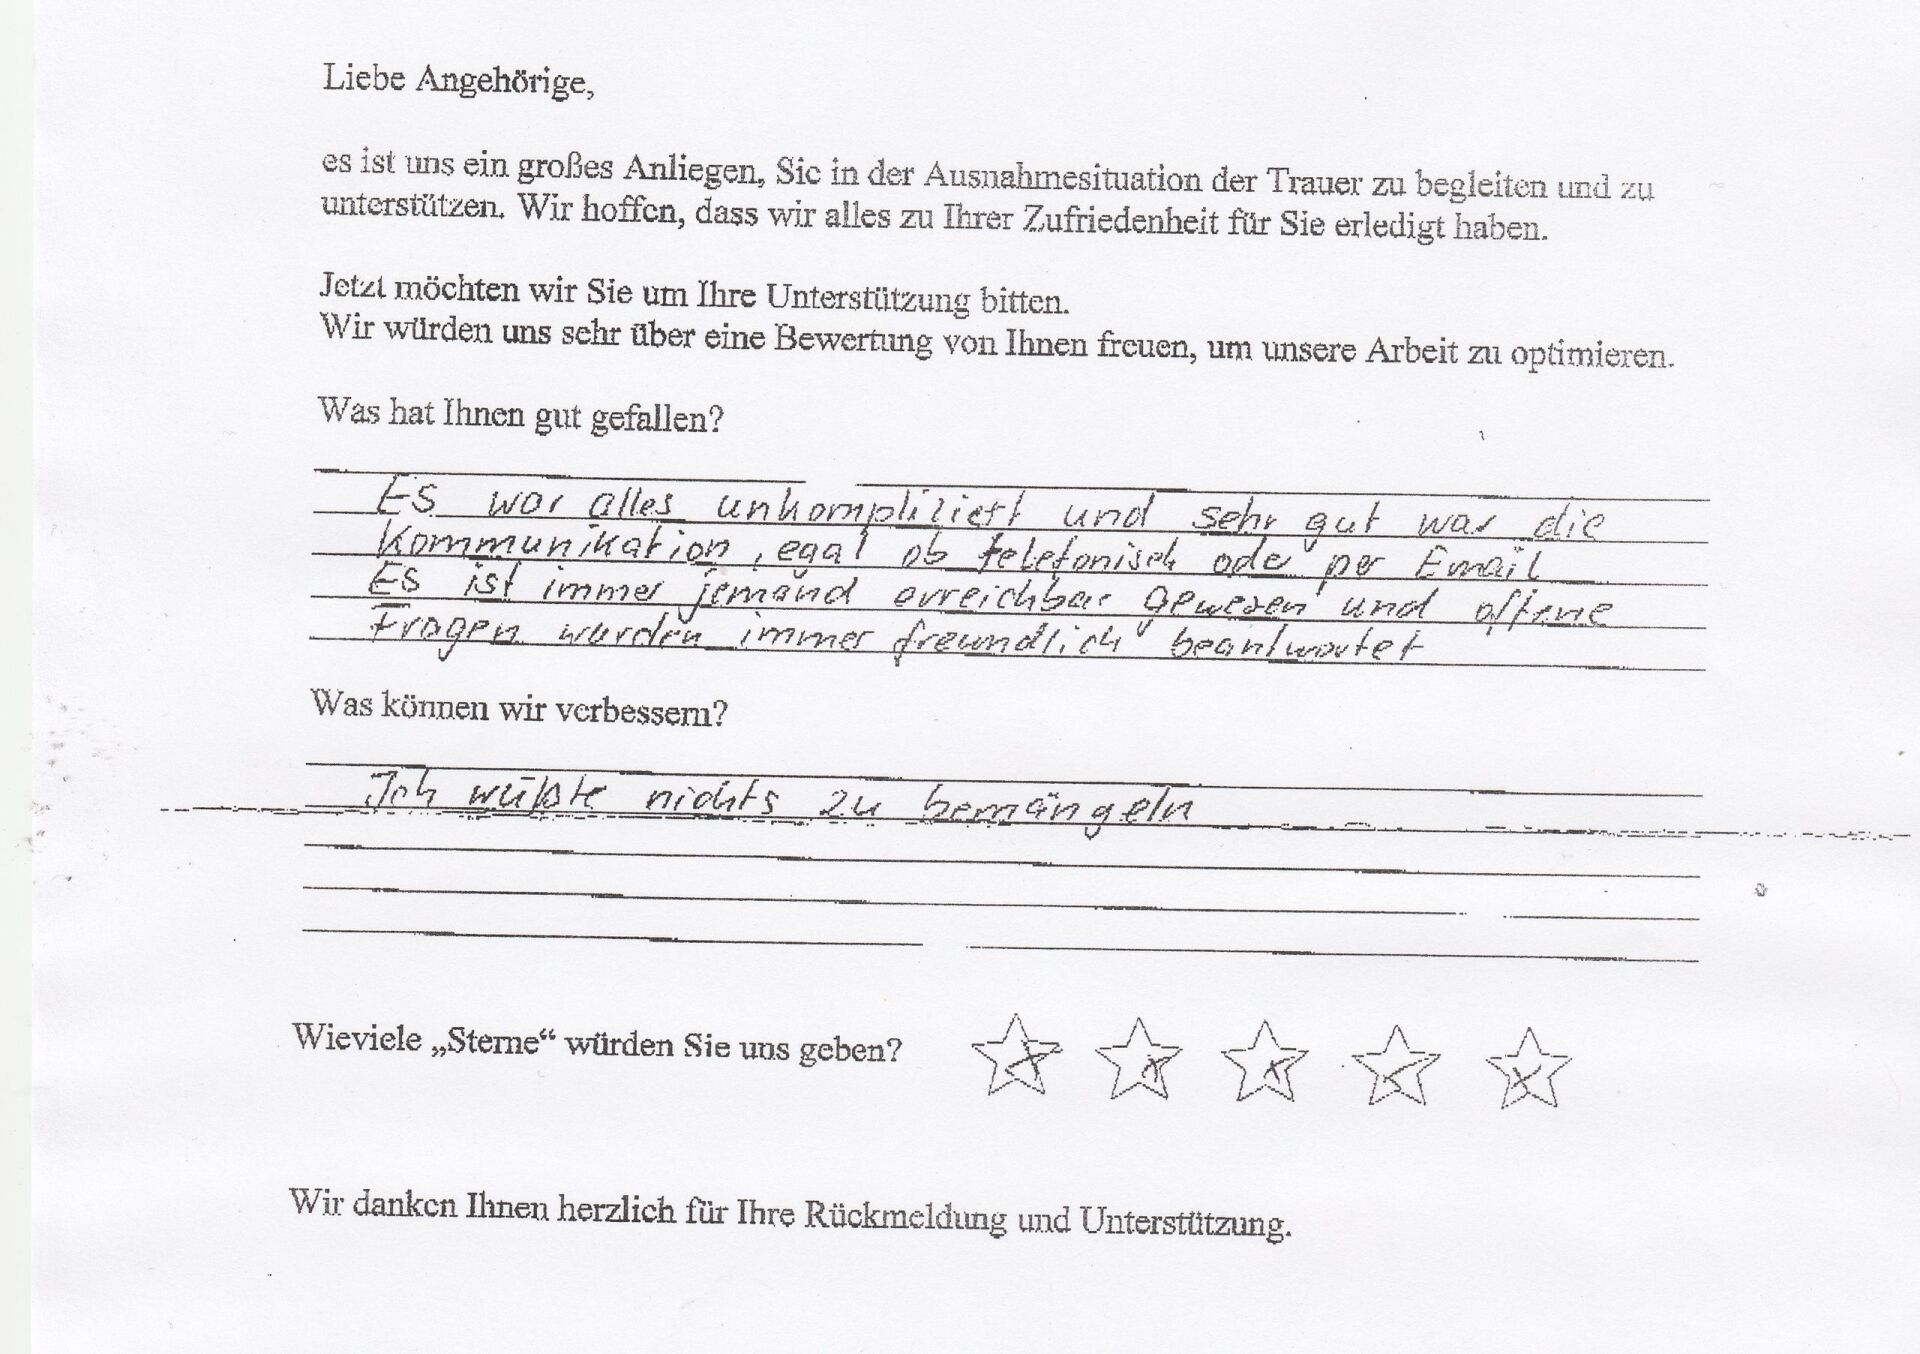 Liebe Angehörige,
es ist uns ein großes Anliegen, Sie in der Ausnahmesituation der Trauer zu begleiten und zu
unterstützen. Wir hoffen, dass wir alles zu Ihrer Zufriedenheit für Sie erledigt haben.
Jetzt möchten wir Sie um Ihre Unterstützung bitten.
Wir würden uns sehr über eine Bewertung von Ihnen freuen, um unsere Arbeit zu optimieren.
Was hat Ihnen gut gefallen?
Es war alles unkompliziert und sehr gut war die
Kommunikation, egal ob telefonisch oder per Email
Es ist immer jemand erreichbar gewesen und offene
Fragen wurden immer freundlich beantwortet
Was können wir verbessern?
Ich wüßte nichts zu bemängeln
Wieviele „Sterne“ würden Sie uns geben?
Wir danken Ihnen herzlich für Ihre Rückmeldung und Unterstützung.